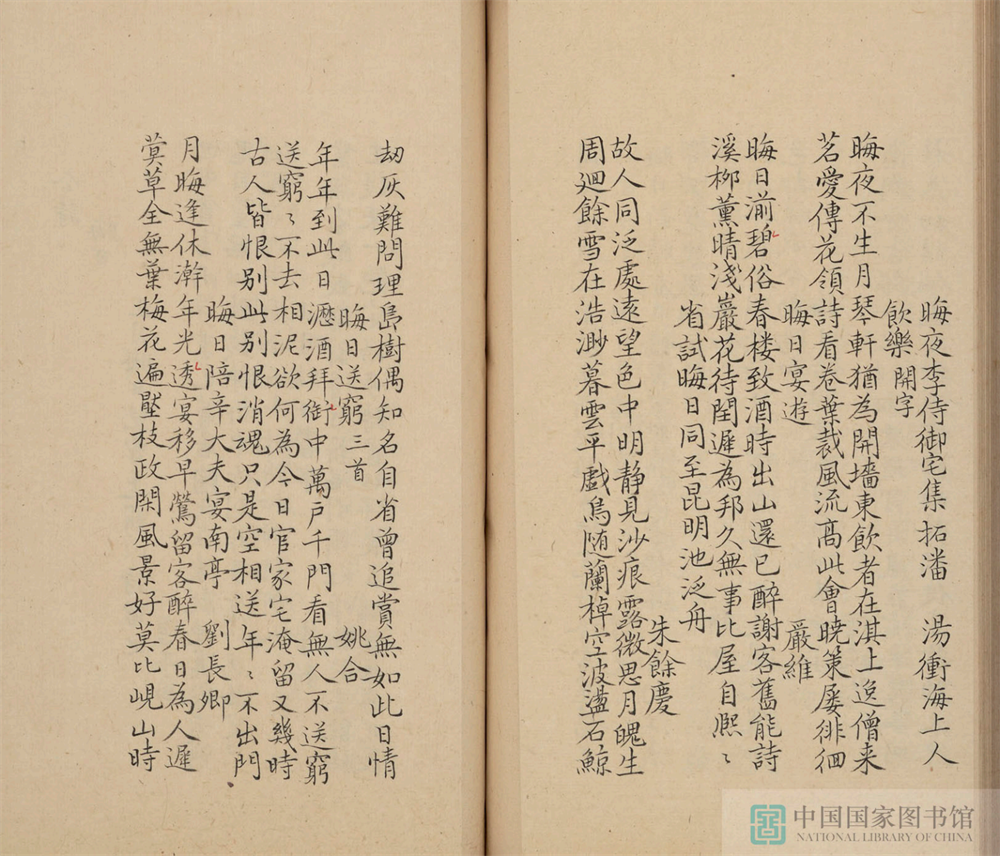 晦夜李侍御宅集拓潘 湯衝海上人
飲樂開字
晦夜不生月琴軒猶為開墻東飲者在淇上逸僧来
茗愛傳花領詩看卷葉裁風流高此會暁策屡徘徊
晦日宴遊 嚴維
晦日湔碧俗春楼致酒時出山還已醉謝客舊能詩
溪柳薰晴淺巖花待閏遲為邦久無事比屋自熈〻
省試晦日同至昆明池泛舟
朱餘慶
故人同泛處遠望色中明静見沙痕露微思月魄生
周廻餘雪在浩渺暮雲平戲鳥随蘭棹空波盪石鯨
劫灰難問理島樹偶知名自省曾追賞無如此日情
晦日送窮三首 姚合
年年到此日瀝酒拜街中萬戸千門看無人不送窮
送窮〻不去相泥欲何為今日官家宅淹留又幾時
古人皆恨别此别恨消魂只是空相送年〻不出門
晦日陪辛大夫宴南亭 劉長卿
月晦逢休澣年光透宴移早鶯留客醉春日為人遲
蓂草全無葉梅花遍壓枝政閑風景好莫比峴山時
中国国家图书馆
NATIONAL LIBRARY OF CHINA